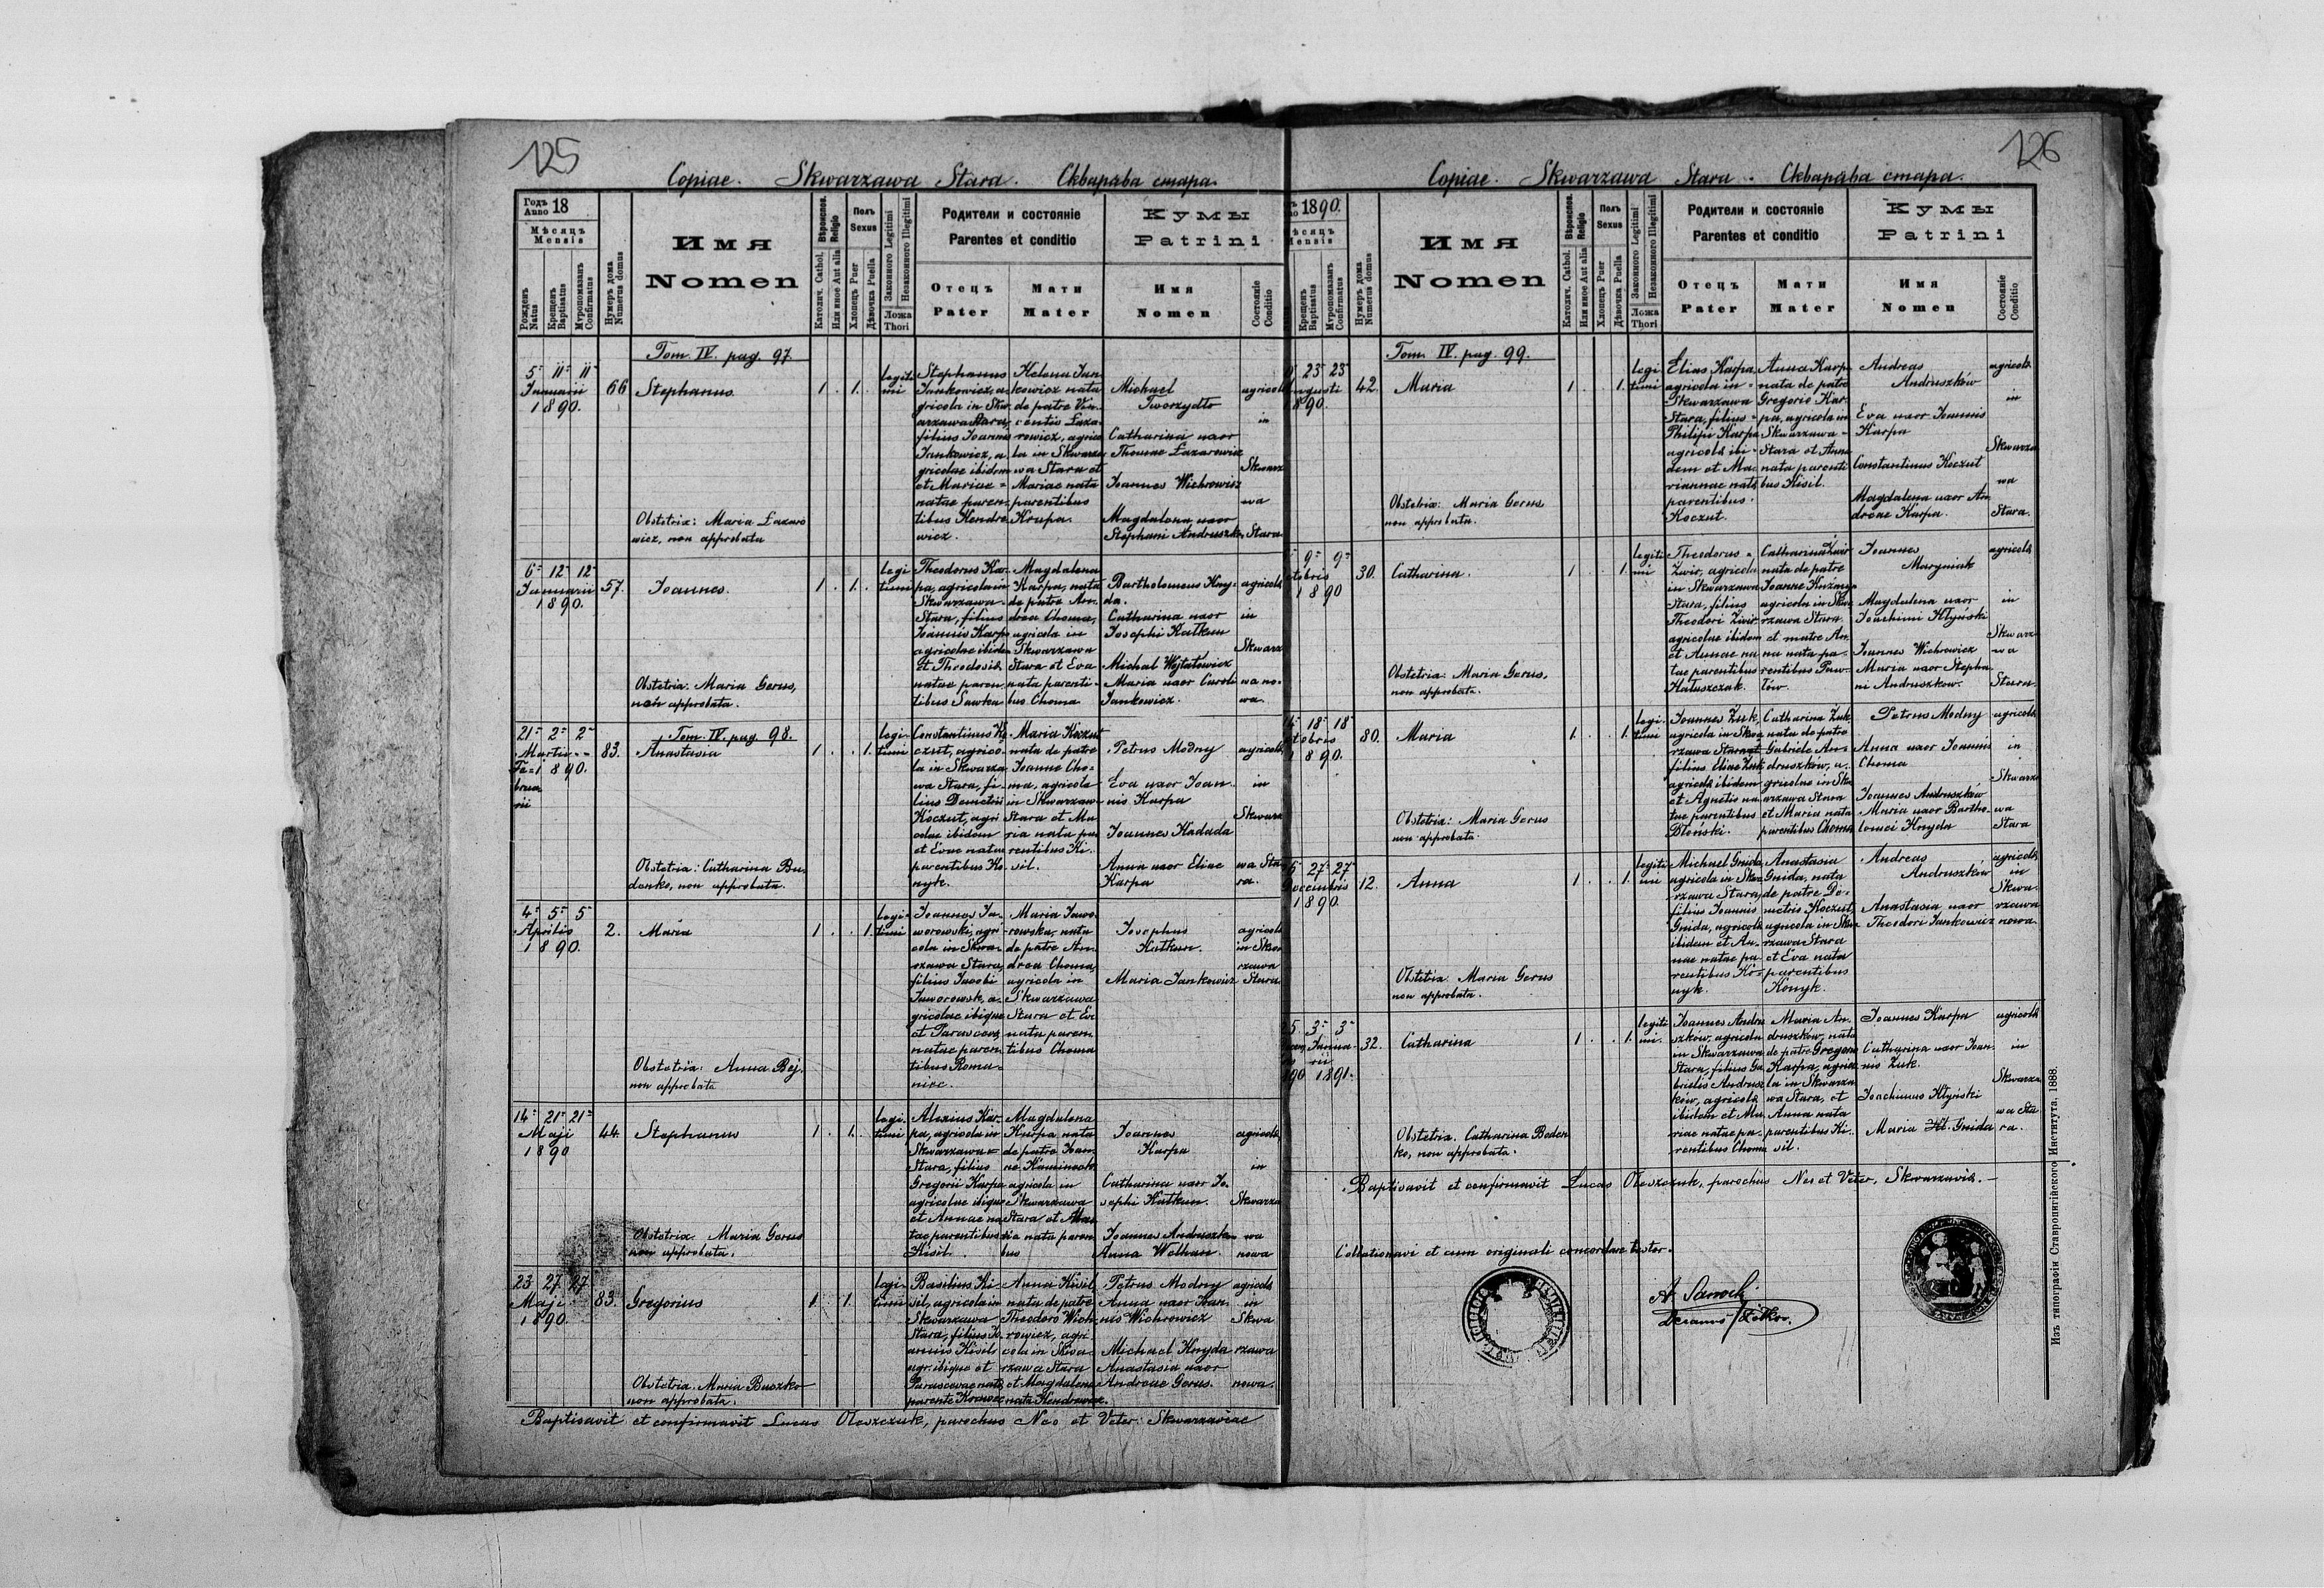 125
Copiae. Skwarzawa Stara. Скварѣва стара.
Годъ Anno 18
Мѣсяцъ
Mensis
Рожденъ Natus
Крещенъ Baptisatus
Мѵропомазанъ Confirmatus
Нумеръ дома Numerus domus
Имя
Nomen
Вѣроиспов. Religio
Католич. Cathol.
Или иное Aut alia
Полъ
Sexus
Хлопецъ Puer
Дѣвочка Puella
Законного Legitimi
Незаконного Illegitimi
Ложа
Thori
Родители и состоянiе
Parentes et conditio
Отецъ
Pater
Мати
Mater
Кумы
Patrini
Имя
Nomen
Состоянiе
Conditio
Tom. IV. pag. 97.
5 11 11
Januarii
1890.
66
Stephanus
1. 1.
legiti
mi
Stephanus
Jankowicz, a-
gricola in Skw-
arzawa Stara,
filius Joannis
Jankowicz, a
gricolae ibidem
et Mariae =
natae paren-
tibus Hendro
wicz.
Helena Jan
kowicz nata
de patre Vin-
centio Laza-
rowicz, agrico
la in Skwarza
wa Stara et
Mariae nata
parentibus
Krupa.
Michael
Tworzydło
Catharina uxor
Thomae Lazarowicz
Joannes Wichrowicz
Magdalena uxor
Stephani Andruszko
agricola
in
Skwarz
wa
Stara
Obstetrix: Maria Lazaro
wicz, non approbata
6 12 12
Januarii
1890.
57.
Joannes.
1. 1.
legi
timi
Theodorus Kar-
pa, agricola in
Skwarzawa
Stara, filius
Joannis Karpa
agricolae ibidem
et Theodosia
natae paren
tibus Sawka
Magdalena
Karpa, nata
de patre An-
drea Choma,
agricola in
Skwarzawa
Stara et Eva
nata parenti-
bus Choma
Bartholomeus Hny-
da.
Catharina uxor
Josephi Kałkun
Michal Wojtałowicz
Maria uxor Caroli
Jankowicz.
agricola
in
Skwarz
wa no-
wa.
Obstetrix: Maria Gerus,
non approbata.
Tom. IV. pag. 98.
21 2 2
Martii
Fe= 1890.
brua
rii
83.
Anastasia
1. 1.
legi-
timi
Constantinus Ko-
czut, agrico-
la in Skwarza
wa Stara, fi-
lius Demetrii
Koczut, agri
colae ibidem
et Evae natae
parentibus Ko
nyk.
Maria Koczut
nata de patre
Joanne Cho=
ma, agricola
in Skwarzaw-
Stara et Ma
ria nata pa
rentibus Ki-
sil.
Petrus Modny
Eva uxor Joan-
nis Karpa
Joannes Kadada
Anna uxor Eliae
Karpa
agricola
in
Skwarz
wa Sta
ra.
Obstetrix: Catharina Bo
denko, non approbata.
4 5 5
Aprilis
1890.
2.
Maria
1. 1.
legi-
timi
Joannes Ja-
worowski, agri
cola in Skwa-
rzawa Stara,
filius Jacobi
Jaworowsk, a-
gricolae ibique
et Parascewa
natae paren
tibus Roma-
niec.
Maria Jawo
rowska, nata
de patre An-
drea Choma,
agricola in
Skwarzawa
Stara et Eva
nata paren
tibus Choma
Josephus
Kałkun.
Maria Jankowicz
agricola
in Skwa
rzawa
Stara.
Obstetrix: Anna Bej.
non approbata
14 21 21
Maji
1890
44.
Stephanus
1. 1.
legi-
timi
Alexius Kar-
pa, agricola in
Skwarzawa
Stara, filius
Gregorii Karpa
agricolae ibique
et Annae na
tae parentibus
Kisil.
Magdalena
Karpa nata
de patre Joan
ne Kaminecki
agricola in
Skwarzawa
Stara et Ma
ria nata paren
bus
Joannes
Karpa
Catharina uxor Jo-
sephi Kałkun.
Joannes Andruszkow
Anna Wolhan.
agricola
in
Skwarza
wa
nowa
Obstetrix Maria Gerus
non approbata.
23 27 27
Maji
1890
83.
Gregorius
1 1.
legi-
timi
Basilius Ki-
sil, agricola in
Skwarzawa
Stara, filius Jo-
annis Kisils
agr. ibique et
Parascevae nata
parente Krawec
Anna Kisil,
nata de patre
Theodoro Wich-
rowicz, agri
cola in Skwa-
rzawa Stara
et Magdalena
nata Hendrowic.
Petrus Modny
Anna uxor Joan-
nis Wichrowicz
Michael Hnyda
Anastasia uxor
Andreae Gerus.
agricola
in
Skwa
rzawa
nowa.
Obstetrix. Maria Buszko
non approbata.
Baptisavit et confirmavit Lucas Oleszczuk, parochus Neo et Veter: Skwarzaviae
126
Copiae. Skwarzawa Stara. Скварѣва стара.
1890.
Крещенъ Baptisatus
Мѵропомазанъ Confirmatus
Нумеръ дома Numerus domus
Имя
Nomen
Вѣроиспов. Religio
Католич. Cathol.
Или иное Aut alia
Полъ
Sexus
Хлопецъ Puer
Дѣвочка Puella
Законного Legitimi
Незаконного Illegitimi
Ложа
Thori
Родители и состоянiе
Parentes et conditio
Отецъ
Pater
Мати
Mater
Кумы
Patrini
Имя
Nomen
Состоянiе
Conditio
Tom. IV. pag. 99.
23 23
ugusti
1890.
42.
Maria
1. 1.
legi
timi
Elias Karpa
agricola in
Skwarzawa
Stara, filius
Philipi Karpa
agricola ibi-
dem et Ma-
riannae nata
parentibus
Koczut.
Anna Karp-
nata de patre
Gregorio Kar-
pa, agricola in
Skwarzawa
Stara et Anna
nata parenti
bus Kisil.
Andreas
Andruszków
Eva uxor Joannis
Karpa
Constantinus Koczut
Magdalena uxor An
dreae Karpa.
agricola
in
Skwarza
wa
Stara.
Obstetrix: Maria Gerus
non approbata.
9 9
ctobris
1890
30.
Catharina.
1. 1.
legiti
mi
Theodorus
Zwir, agricola
in Skwarzawa
Stara, filius
Theodori Zwir
agricolae ibidem
et Annae na
tae parentibus
Hałuszczak.
Catharina Zwir
nata de patre
Joanne Kużny
agricola in Skwa
rzawa Stara
et matre An-
na nata pa-
rentibus Paw-
łów.
Joannes
Maryniak
Magdalena uxor
Joachimi Hłyński
Joannes Wichrowicz
Maria uxor Stepha
ni Andruszkow.
agricola
in
Skwarz
wa
Stara.
Obstetrix: Maria Gerus,
non approbata.
18 18
ctobris
1890.
80.
Maria
1. 1.
legi-
timi
Joannes Zuk,
agricola in Skwa
rzawa Stara
filius Eliae Zuk
agricola ibidem
et Agnetis na
tae parentibus
Dłoński.
Catharina Zuk
nata de patre
Gabriele An-
druszków, a-
gricolae in Skw
arzawa Stara
et Maria nata
parentibus Choma
Petrus Modny
Anna uxor Joannis
Choma
Joannes Andruszków
Maria uxor Bartho
lomei Hnyda
agricola
in
Skwarz
wa
Stara
Obstetrix: Maria Gerus
non approbata.
27 27
ecembris
1890.
12.
Anna
1. 1.
legiti
mi
Michael Gnida,
agricola in Skwa
rzawa Stara,
filius Joannis
Gnida, agricola
ibidem et An-
nae natae pa
rentibus Ko-
nyk.
Anastasia
Gnida, nata
de patre De-
metrio Koczut,
agricola in Skwa
rzawa Stara
et Eva nata
parentibus
Konyk.
Andreas
Andruszków
Anastasia uxor
Theodori Jankowicz
agricola
in
Skwa-
rzawa
nowa.
Obstetrix. Maria Gerus
non approbata.
5. 3 3
Janua-
rii
1891.
32.
Catharina
1. 1.
legiti
mi.
Joannes Andru
szków, agricola
in Skwarzawa
Stara, filius Ga
brielis Andrusz
ków, agricola
ibidem et Ma
riae natae pa-
rentibus Choma
Maria An-
druszkow, nata
de patre Gregorio
Karpa, agrico
la in Skwarza
wa Stara, et
Anna nata
parentibus Ki-
sil.
Joannes Karpa
Catharina uxor Joan-
nis Zuk.
Joachimus Hłyński
Maria Gnida
agricola
in
Skwarza
wa Sta
ra.
Obstetrix. Catharina Boden
ko, non approbata.
Baptisavit et confirmavit Lucas Oleszczuk, parochus Neo et Veter. Skwarzavia.
Collationavi et cum originali concordare testor.
Decanus Żółkov.
Изъ типографiи Ставропигiйского Института. 1888.